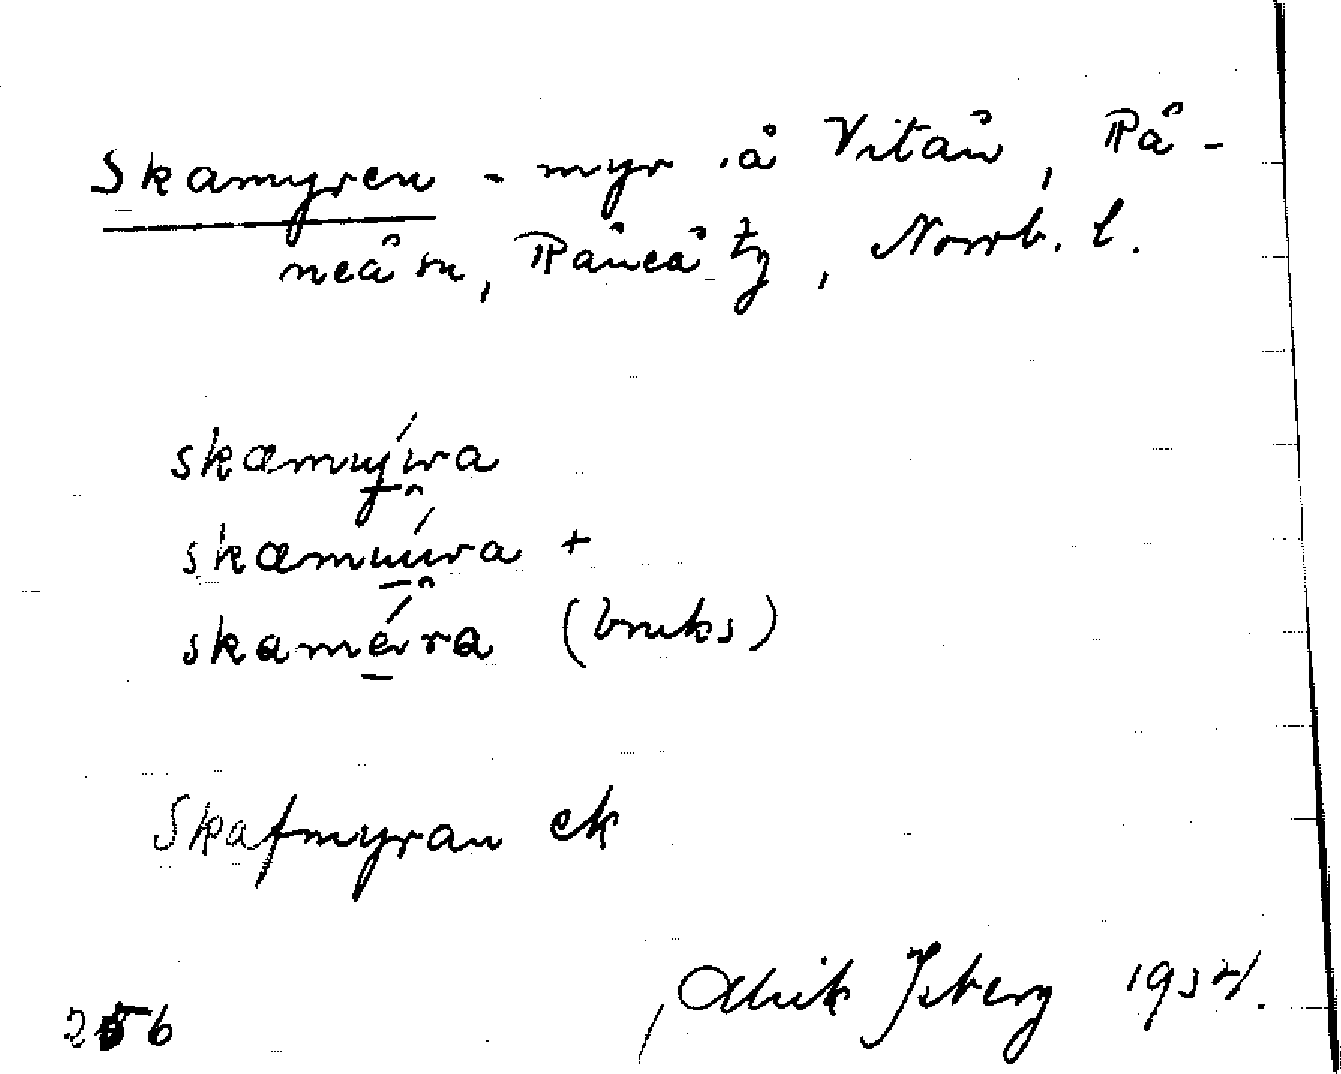 Skamyren - myr å Vitån, Rå-
neå sn, Råneå tg, Norrb. l.
skamýra
skamúra +
skaméra (bruks)
Skafmyran ek
Alrik Isberg 1934.
256